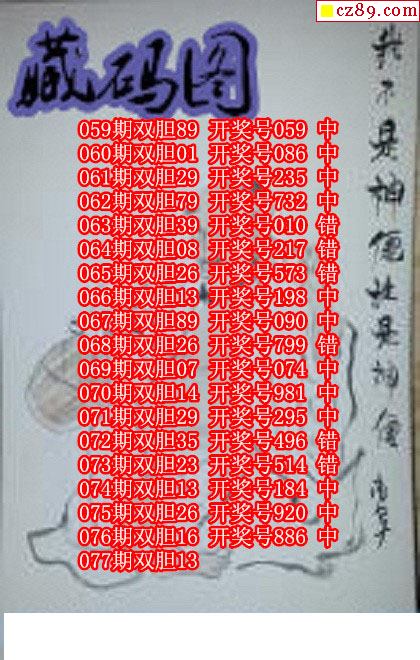 cz89.com
藏码图
059期双胆89 开奖号059 中
060期双胆01 开奖号086 中
061期双胆29 开奖号235 中
062期双胆79 开奖号732 中
063期双胆39 开奖号010 错
064期双胆08 开奖号217 错
065期双胆26 开奖号573 错
066期双胆13 开奖号198 中
067期双胆89 开奖号090 中
068期双胆26 开奖号799 错
069期双胆07 开奖号074 中
070期双胆14 开奖号981 中
071期双胆29 开奖号295 中
072期双胆35 开奖号496 错
073期双胆23 开奖号514 错
074期双胆13 开奖号184 中
075期双胆26 开奖号920 中
076期双胆16 开奖号886 中
077期双胆13
我不是神但是神